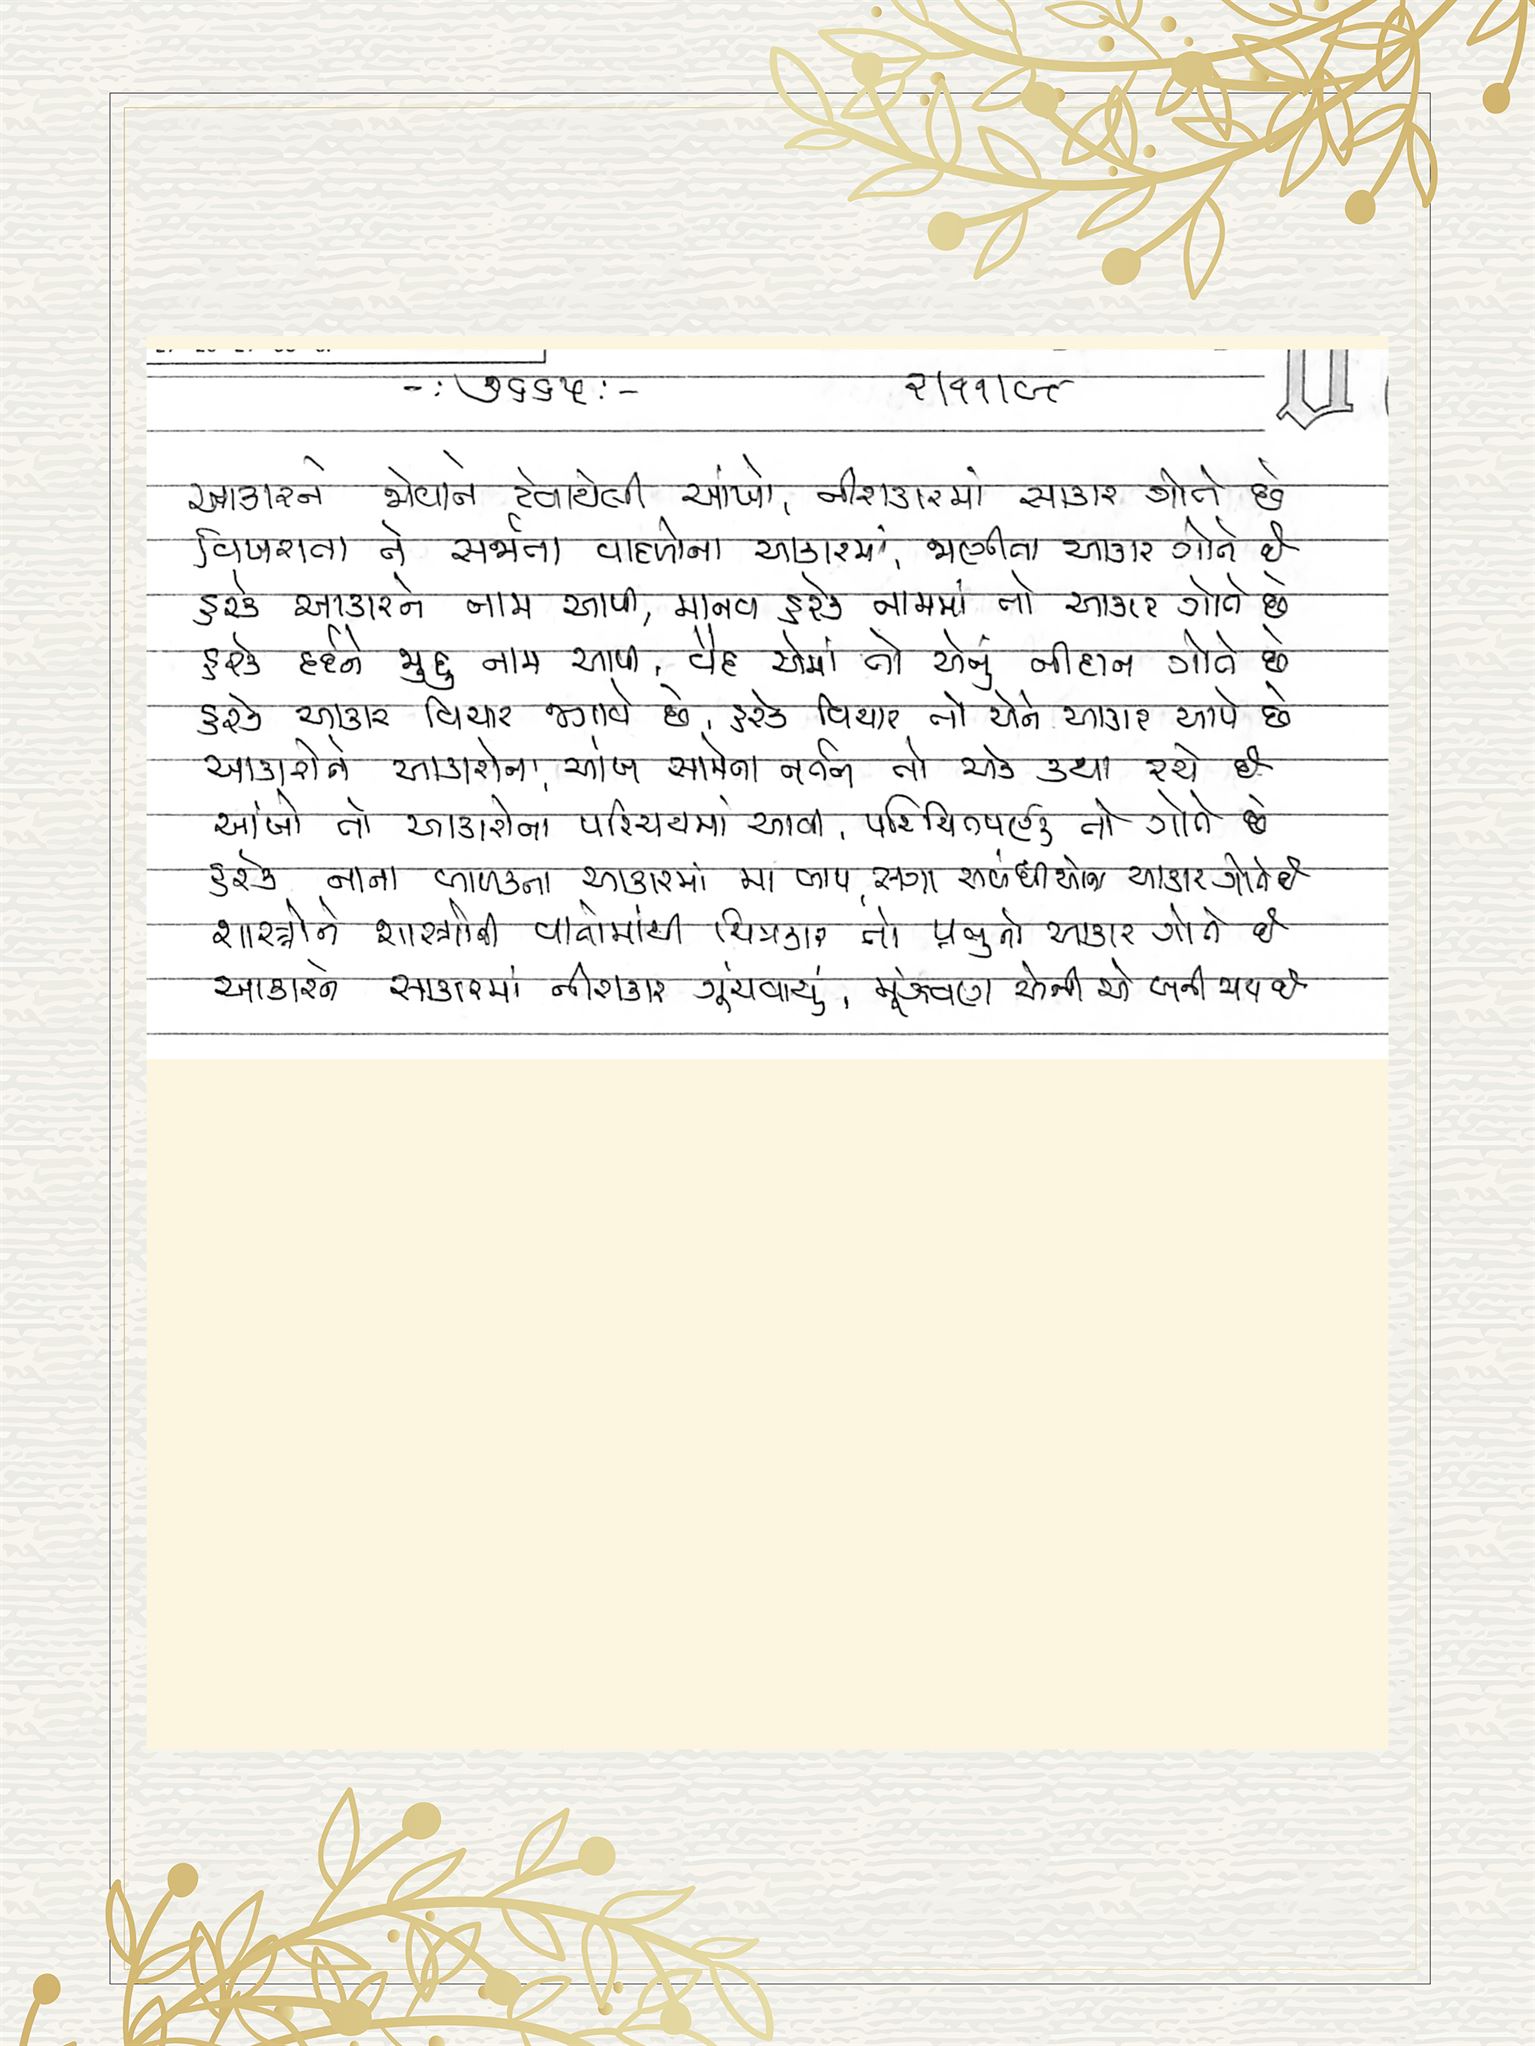 -: ૭૬૬૫ :-
૨/૧૧/૯૮
આકારને જોવાને ટેવાયેલી આંખો, નીરાકારમાં સાકાર ગોતે છે
વિખરાતા ને સર્જાતા વાદળોના આકારમાં, જાણીતા આકાર ગોતે છે
હરેક આકારને નામ આપી, માનવ હરેક નામમાં તો આકાર ગોતે છે
હરેક દર્દને જુદુ નામ આપી, વૈદ એમાં તો એનું નીદાન ગોતે છે
હરેક આકાર વિચાર જગાવે છે, હરેક વિચાર તો એને આકાર આપે છે
આકારોને આકારોના, આંખ સામેના નર્તન તો એક કથા રચે છે
આંખો તો આકારોના પરિચયમાં આવી, પરિચિતપણું તો ગોતે છે
હરેક નાના બાળકના આકારમાં મા બાપ, સગા સબંધીઓના આકાર ગોતે છે
શાસ્ત્રોને શાસ્ત્રોની વાતોમાંથી ચિત્રકાર તો પ્રભુનો આકાર ગોતે છે
આકારને સાકારમાં નીરાકાર ગૂંચવાયું, મૂંઝવણ એની એ બની જાય છે